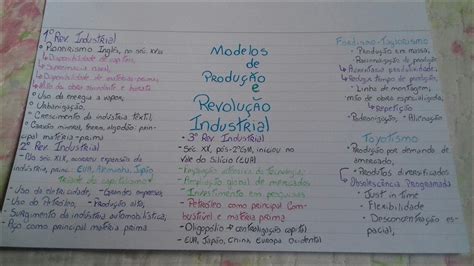 1º Rev. Industrial
• Pioneirismo Inglês, no séc. XVIII
↳ Disponibilidade de capitais,
↳ Supremacia naval,
↳ Disponibilidade de matéria-prima,
↳ Mão de obra abundante e barata
• Uso da energia a vapor,
• Urbanização,
• Crescimento da indústria têxtil
• Carvão mineral, ferro, algodão prin-
cipal matéria-prima
2º Rev. Industrial
• No séc. XIX, acelerou expansão da
indústria, EUA, Alemanha, Japão
• Uso da eletricidade, Grandes empresas,
• Uso do Petróleo, Produção alta,
• Surgimento da indústria automobilística,
• Aço como principal matéria prima
Modelos
de
Produção
e
Revolução
Industrial
• 3º Rev. Industrial
• Séc. XX, pós-2º GM, iniciou no
Vale do Silício (EUA)
• Ampliação global de mercados
• Investimento em pesquisas
• Petróleo como principal Com-
bustível e matéria prima
• Oligopólio → centralização capital
• EUA, Japão, China, Europa Ocidental
Fordismo-Taylorismo
• Produção em massa,
• Racionalização da produção
↳ Aumentava produtividade,
↳ Reduz tempo de produção,
• Linha de montagem,
mão de obra especializada,
↳ repetição
• Padronização, Alienação
Toyotismo
• Produção por demanda de
mercado,
• Produtos diversificados
↳ Obsolescência Programada
• Just in Time
• Flexibilidade
• Desconcentração es-
pacial,